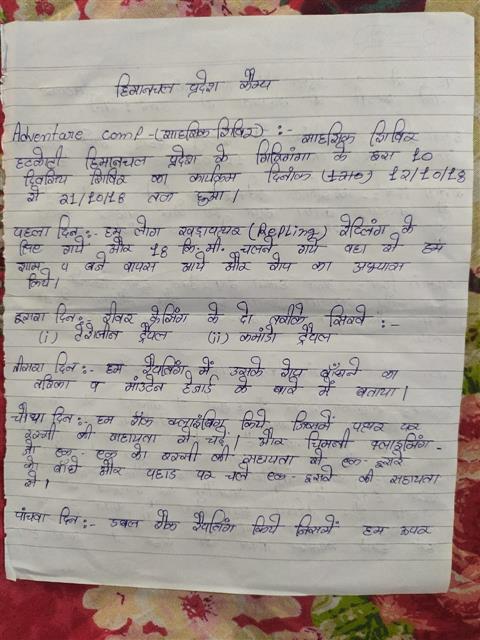 हिमानचल प्रदेश कैम्प
Adventare comp-(साहसिक शिविर) :- साहसिक शिविर
हटकोटी हिमानचल प्रदेश के गिरिगंगा के द्वारा 10
दिवसिय शिविर का कार्यक्रम दिनांक 12/10/18
से 21/10/18 तक हुआ।
पहला दिन:- हम लोग खड़ापत्थर (Repling) रेप्लिंग के
लिए गये और 18 कि.मी. चलने गये वहा से हम
शाम 7 बजे वापस आये और रोप का अभ्यास
किये।
दूसरा दिन:- रीवर क्रेसिंग के दो तरीके सिखे :-
(i) ट्रेंशलीन ट्रैवल (ii) कमांडो ट्रैवल
तीसरा दिन:- हम रैपलिंग में उसके रोप बाँधने का
तरिका व मांउटेन हेजार्ड के बारे में बताया।
चौथा दिन:- हम रॉक क्लाइंबिंग किये जिसमें पत्थर पर
रस्सी की सहायता से चढ़े। और चिमनी क्लाइमिंग-
में एक-एक का रस्सी की सहायता से एक-दूसरे
को बांधे और पहाड़ पर चले एक-दूसरे की सहायता
से।
पांचवा दिन:- डबल रॉक रैपलिंग किये जिसमें हम ऊपर